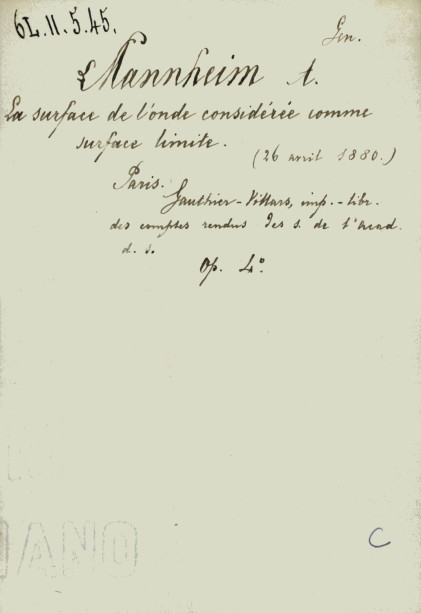 6L.11.5.45.
Gen.
Mannheim A.
La surface de l'onde considérée comme
surface limite.
(26 avril 1880.)
Paris.
Gauthier-Villars, imp.-libr.
des comptes rendus des s. de l'Acad.
d. s.
Op. 4°.
C